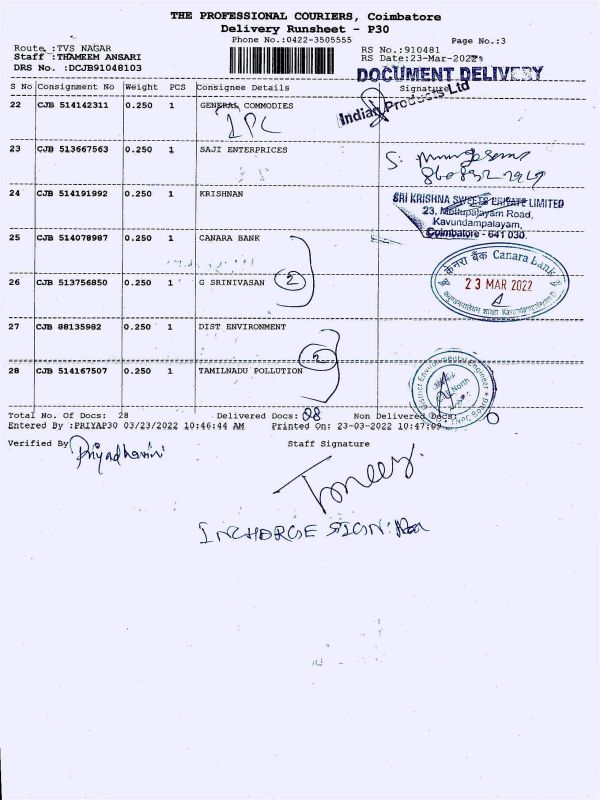 THE PROFESSIONAL COURIERS, Coimbatore
Delivery Runsheet - P30
Phone No.:0422-3505555
Page No.:3
Route :TVS NAGAR
RS No.:910481
Staff :THAMEEM ANSARI
RS Date:23-Mar-2022
DRS No. :DCJB91048103
DOCUMENT DELIVERY
S No Consignment No Weight PCS Consignee Details Signature
22 CJB 514142311 0.250 1 GENERAL COMMODIES
Indian Products Ltd
IPL
23 CJB 513667563 0.250 1 SAJI ENTERPRICES
24 CJB 514191992 0.250 1 KRISHNAN
SRI KRISHNA SWEETS PRIVATE LIMITED
23, Mettupalayam Road,
Kavundampalayam,
Coimbatore - 641 030.
25 CJB 514078987 0.250 1 CANARA BANK
केनरा बैंक Canara Bank
23 MAR 2022
26 CJB 513756850 0.250 1 G SRINIVASAN 2
27 CJB 88135982 0.250 1 DIST ENVIRONMENT
2
28 CJB 514167507 0.250 1 TAMILNADU POLLUTION
District Environmental Engineer
North
Total No. Of Docs: 28 Delivered Docs: 08 Non Delivered Docs: 0
Entered By :PRIYAP30 03/23/2022 10:46:44 AM Printed On: 23-03-2022 10:47:09
Verified By Priyadharini
Staff Signature
INCHARGE SIGN: